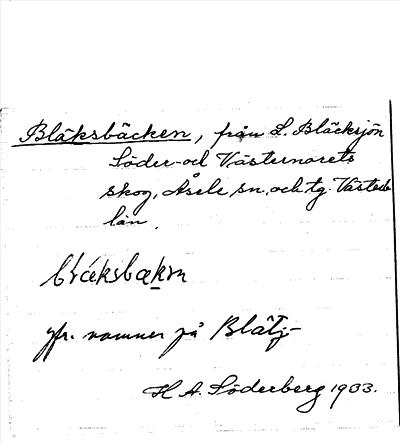 Bläksbäcken, från L. Bläcksjön
Söder- och Västernorets
skog, Åsele sn. och tg. Västerb.
län.
jfr. namnen på Blätj-
H A. Söderberg 1933.